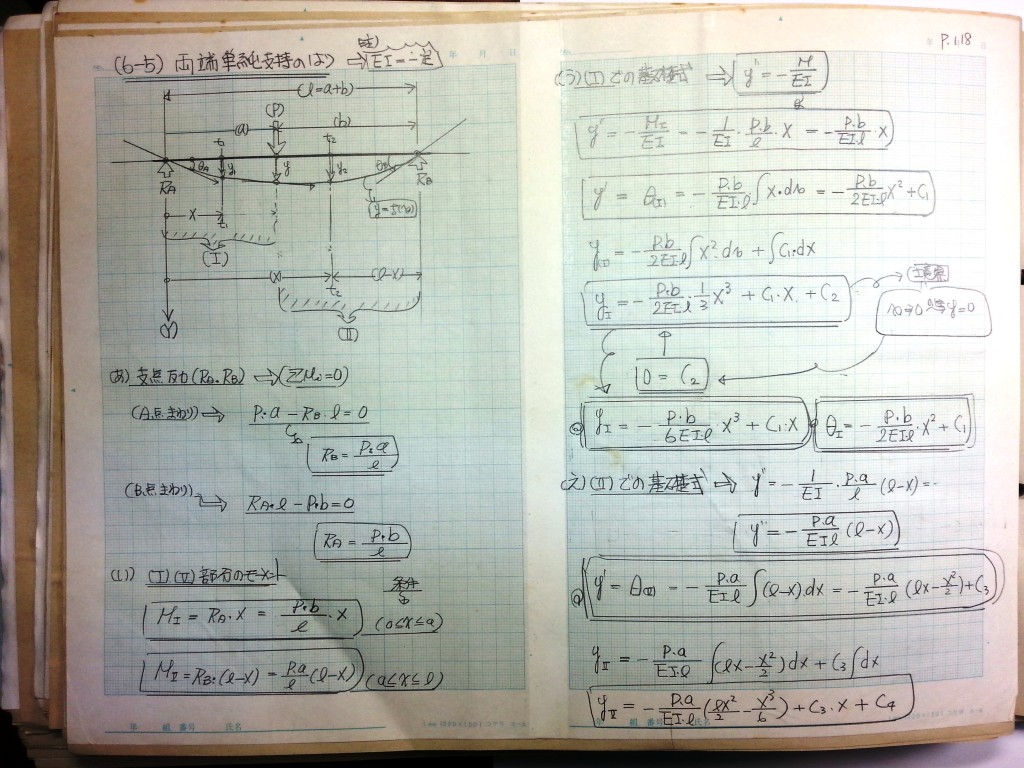 (6-5) 両端単純支持のはり ⇒ EI=一定
注)
(l=a+b)
(P)
(a)
(b)
t1
t2
θA
y1
y
y2
θB
RA
RB
y=f(x)
x
t1
(I)
(x)
(l-x)
t2
(Y)
(II)
(あ) 支点反力(RA.RB) ⇒ (ΣM=0)
(A点まわり) ⇒ P・a - RB・l = 0
RB = P・a/l
(B点まわり) ⇒ RA・l - P・b = 0
RA = P・b/l
(い) (I)(II)部分のモーメント
条件
MI = RA・x = P・b/l・x (0≤x≤a)
MII = RB・(l-x) = P.a/l (l-x) (a≤x≤l)
年 組 番号 氏名
年 月 日
P.118
(う) (I)での基礎式 ⇒ y'' = -M/EI
y'' = -MI/EI = -1/EI・P.b/l・x = -P.b/EI.l・x
y' = θ(I) = -P.b/EI.l ∫x・dx = -P.b/2EI.l x² + C1
y(I) = -P.b/2EI.l ∫x².dx + ∫C1.dx
yI = -P.b/2EI.l・1/3 x³ + C1・x + C2
(境界)
x=0 のとき y=0
0 = C2
yI = -P.b/6EI.l・x³ + C1・x
θI = -P.b/2EI.l・x² + C1
(え) (II)での基礎式 ⇒ y'' = -1/EI・P.a/l (l-x) = ‥
y'' = -P.a/EI.l (l-x)
y' = θ(II) = -P.a/EI.l ∫(l-x).dx = -P.a/EI.l (lx - x²/2) + C3
yII = -P.a/EI.l ∫(lx - x²/2)dx + C3∫dx
yII = -P.a/EI.l (lx²/2 - x³/6) + C3・x + C4
年 組 番号 氏名